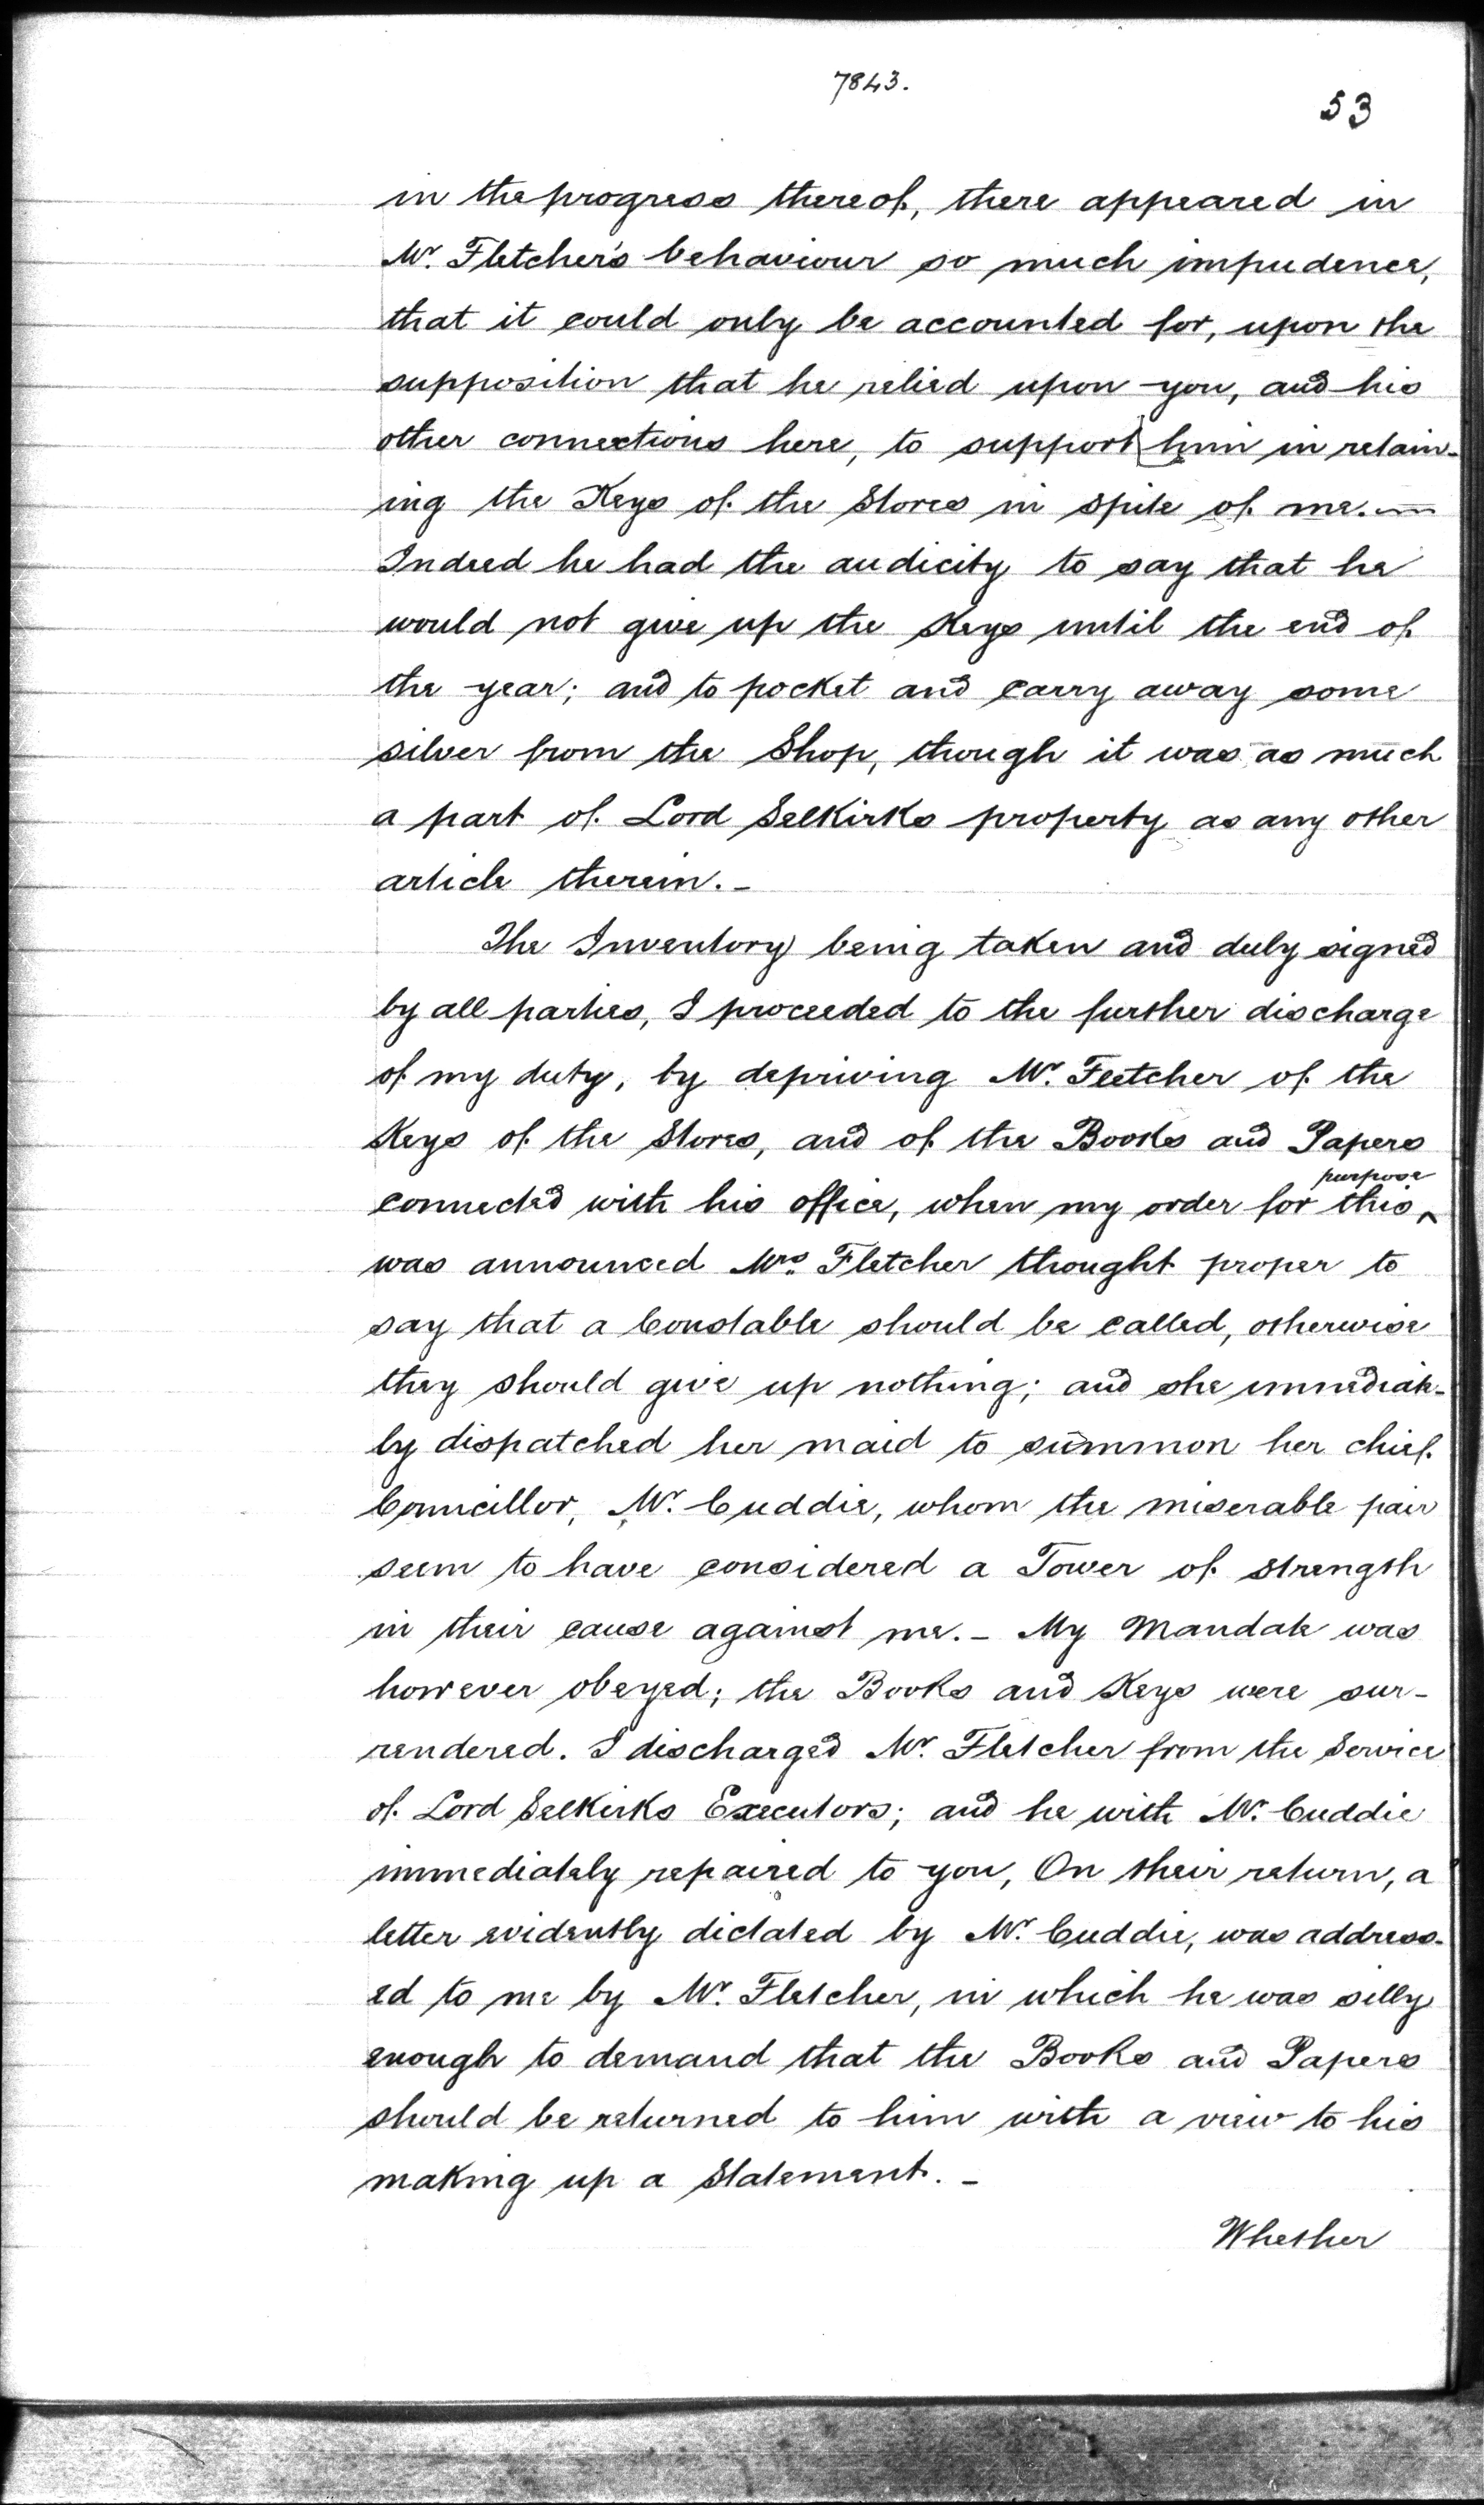 7843.
53
in the progress thereof, there appeared in
Mr. Fletcher's behaviour so much impudence,
that it could only be accounted for, upon the
supposition that he relied upon you, and his
other connections here, to support him in retain-
ing the Keys of the Stores in spite of me. —
Indeed he had the audicity to say that he
would not give up the Keys until the end of
the year; and to pocket and carry away some
silver from the Shop, though it was as much
a part of Lord Selkirks property as any other
article therein. -
The Inventory being taken and duly signed
by all parties, I proceeded to the further discharge
of my duty, by depriving Mr. Fletcher of the
Keys of the Stores, and of the Books and Papers
connected with his office, when my order for this ^ purpose
was announced Mrs. Fletcher thought proper to
say that a Constable should be called, otherwise
they should give up nothing; and she immediate-
ly dispatched her maid to summon her chief
Councillor, Mr. Cuddie, whom the miserable pair
seem to have considered a Tower of strength
in their cause against me. - My Mandate was
however obeyed; the Books and Keys were sur-
rendered. I discharged Mr. Fletcher from the Service
of Lord Selkirks Executors; and he with Mr. Cuddie
immediately repaired to you, On their return, a
letter evidently dictated by Mr. Cuddie, was address-
ed to me by Mr. Fletcher, in which he was silly
enough to demand that the Books and Papers
should be returned to him with a view to his
making up a Statement. -
Whether